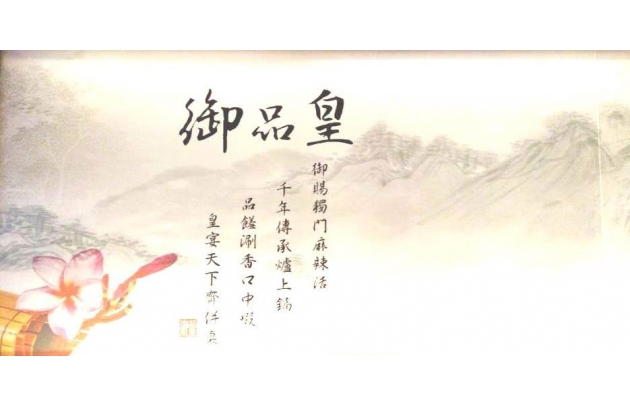 御品皇
御賜獨門麻辣活
千年傳承爐上鍋
品饈涮香口中啜
皇宴天下齊併桌